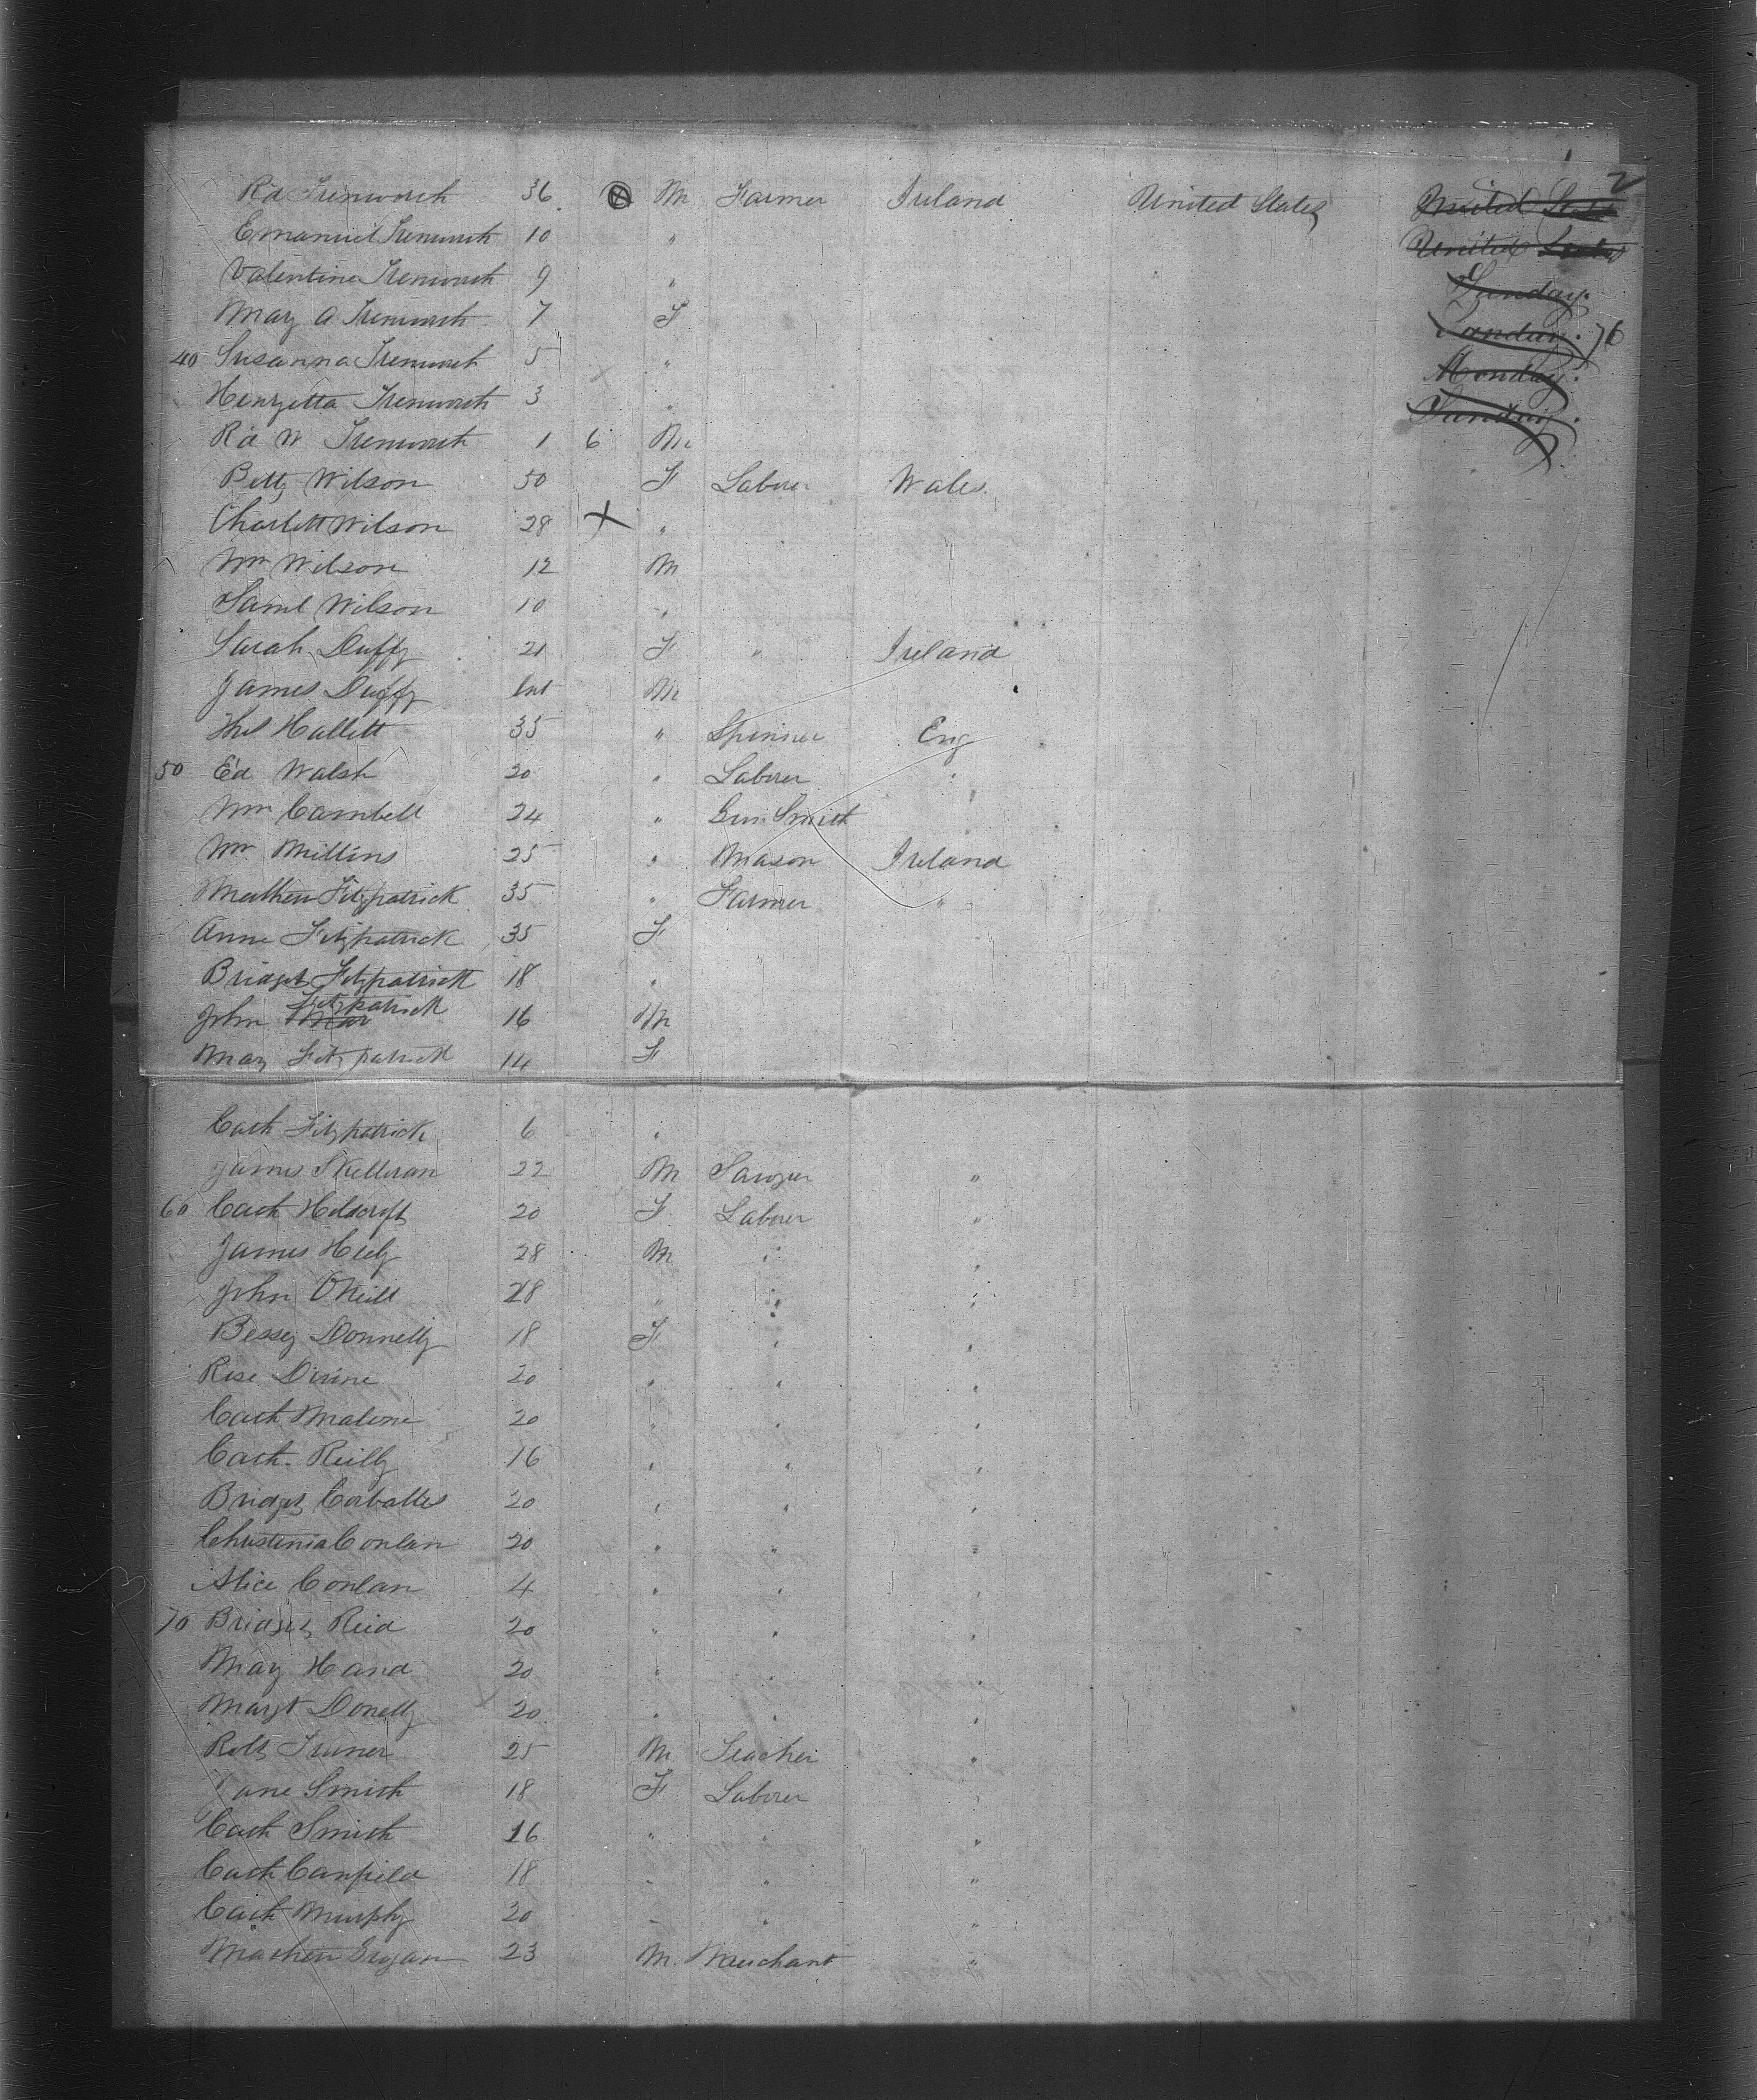 2
Rd Trenworth 36 M Farmer Ireland United States United States
Emanuel Trenworth 10 " United States
Valentine Trenworth 9 " Sunday.
Mary A Trenworth 7 F Sunday. 76
40 Susanna Trenworth 5 " Monday.
Henrzetta Trenworth 3 " Sunday.
Rd W Trenworth 1 6 M
Betty Wilson 50 F Laborer Wales
Charlott Wilson 28 X "
Wm Wilson 12 M
Saml Wilson 10 "
Sarah Duffy 21 F " Ireland
James Duffy Inf M
Thos Hallett 35 " Spinner Eng
50 Ed Walsh 20 " Laborer "
Wm Cambell 24 " Gun Smith
Wm Millins 25 " Mason Ireland
Mathew Fitzpatrick 35 " Farmer "
Anne Fitzpatrick 35 F
Bridget Fitzpatrick 18 "
John Mar Fitzpatrick 16 M
Mary Fitzpatrick 14 F
Cath Fitzpatrick 6 "
James Skelleran 22 M Sawyer "
60 Cath Holdcroft 20 F Laborer "
James Heely 28 M " "
John ONeill 28 " " "
Bessy Donnelly 18 F " "
Rose Divine 20 " " "
Cath Malone 20 " " "
Cath. Reilly 16 " " "
Bridget Corballes 20 " " "
Christenia Conlan 20 " " "
Alice Conlan 4 " " "
70 Bridget Reid 20 " " "
Mary Hand 20 " "
Margt Donelly 20 " " "
Robt Turner 25 M Teacher "
Jane Smith 18 F Laborer "
Cath Smith 16 " " "
Cath Canfield 18 " " "
Cath Murphy 20 " " "
Mathew Grogan 23 M. Merchant "